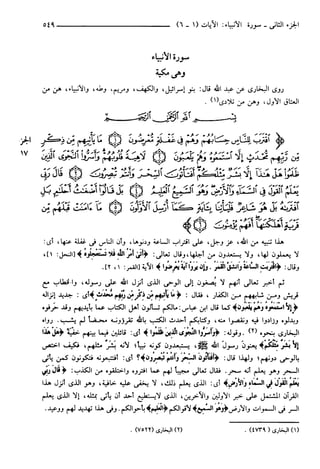 الجزء الثانى ـ سورة الأنبياء: الآيات (١ ـ ٦) ٥٤٩
سورة الأنبياء
وهى مكية
روى البخارى عن عبد الله قال: بنو إسرائيل، والكهف، ومريم، وطه، والأنبياء، هن من
العتاق الأول، وهن من تلادى(١) .
﴿ ٱقْتَرَبَ لِلنَّاسِ حِسَابُهُمْ وَهُمْ فِى غَفْلَةٍ مُّعْرِضُونَ ۝ مَا يَأْتِيهِم مِّن ذِكْرٍ
الجزء
١٧
مِّن رَّبِّهِم مُّحْدَثٍ إِلَّا ٱسْتَمَعُوهُ وَهُمْ يَلْعَبُونَ ۝ لَاهِيَةً قُلُوبُهُمْ وَأَسَرُّوا۟ ٱلنَّجْوَى ٱلَّذِينَ
ظَلَمُوا۟ هَلْ هَٰذَآ إِلَّا بَشَرٌ مِّثْلُكُمْ أَفَتَأْتُونَ ٱلسِّحْرَ وَأَنتُمْ تُبْصِرُونَ ۝ قَالَ رَبِّى
يَعْلَمُ ٱلْقَوْلَ فِى ٱلسَّمَآءِ وَٱلْأَرْضِ وَهُوَ ٱلسَّمِيعُ ٱلْعَلِيمُ ۝ بَلْ قَالُوٓا۟ أَضْغَٰثُ أَحْلَٰمٍ بَلِ
ٱفْتَرَىٰهُ بَلْ هُوَ شَاعِرٌ فَلْيَأْتِنَا بِـَٔايَةٍ كَمَآ أُرْسِلَ ٱلْأَوَّلُونَ ۝ مَآ ءَامَنَتْ قَبْلَهُم مِّن
قَرْيَةٍ أَهْلَكْنَٰهَآ أَفَهُمْ يُؤْمِنُونَ ۝ ﴾
هذا تنبيه من الله، عز وجل، على اقتراب الساعة ودنوها، وأن الناس فى غفلة عنها، أى:
لا يعملون لها، ولا يستعدون من أجلها، وقال تعالى: ﴿أَتَىٰ أَمْرُ اللَّهِ فَلا تَسْتَعْجِلُوهُ﴾ [النحل: ١]،
وقال: ﴿اقْتَرَبَتِ السَّاعَةُ وَانشَقَّ الْقَمَرُ . وَإِن يَرَوْا آيَةً يُعْرِضُوا﴾ الآية [القمر: ١، ٢].
ثم أخبر تعالى أنهم لا يصغون إلى الوحى الذى أنزل الله على رسوله، والخطاب مع
قريش ومن شابههم من الكفار ، فقال : ﴿مَا يَأْتِيهِم مِّن ذِكْرٍ مِّن رَّبِّهِم مُّحْدَثٍ﴾أى : جديد إنزاله
﴿إِلَّا اسْتَمَعُوهُ وَهُمْ يَلْعَبُونَ﴾ كما قال ابن عباس: مالكم تسألون أهل الكتاب عما بأيديهم وقد حرفوه
وبدلوه وزادوا فيه ونقصوا منه، وكتابكم أحدث الكتب بالله تقرؤونه محضاً لم يشب. رواه
البخارى بنحوه (٢) .وقوله: ﴿وَأَسَرُّوا النَّجْوَى الَّذِينَ ظَلَمُوا﴾ أى: قائلين فيما بينهم خفية ﴿هَلْ هَٰذَا
إِلَّا بَشَرٌ مِّثْلُكُمْ﴾ يعنون رسول الله ﷺ، يستبعدون كونه نبياً؛ لأنه بَشَرٌ مثلهم، فكيف اختص
بالوحى دونهم، ولهذا قال: ﴿أَفَتَأْتُونَ السِّحْرَ وَأَنتُمْ تُبْصِرُونَ﴾؟ أى: أفتتبعونه فتكونون كمن يأتى
السحر وهو يعلم أنه سحر. فقال تعالى مجيباً لهم عما افتروه واختلقوه من الكذب: ﴿قَالَ رَبِّي
يَعْلَمُ الْقَوْلَ فِي السَّمَاءِ وَالْأَرْضِ﴾ أى: الذى يعلم ذلك، لا يخفى عليه خافية، وهو الذى أنزل هذا
القرآن المشتمل على خبر الأولين والآخرين، الذى لايستطيع أحد أن يأتى بمثله، إلا الذى يعلم
السر فى السموات والأرض﴿وَهُوَ السَّمِيعُ﴾ لأقوالكم﴿الْعَلِيمُ﴾ بأحوالكم. وفى هذا تهديد لهم ووعيد.
(١) البخارى ( ٤٧٣٩ ) . (٢) البخارى (٧٥٢٢) .